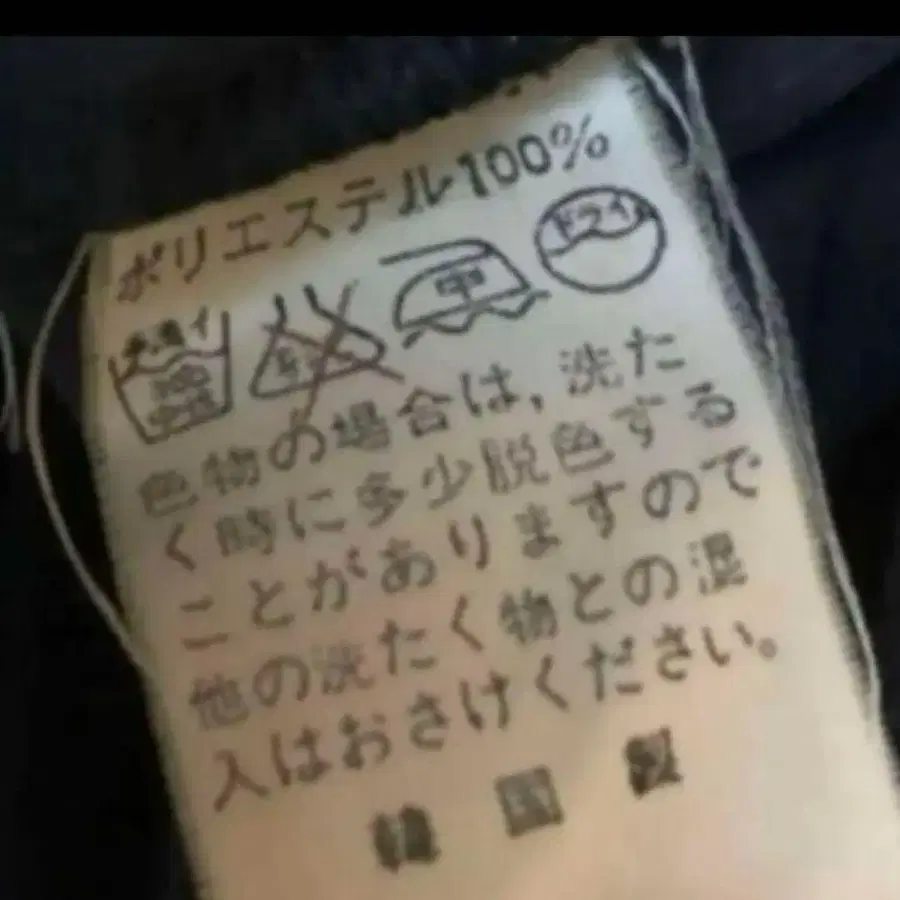 ポリエステル100%
手洗イ 中 ドライ
色物の場合は,洗た
く時に多少脱色する
ことがありますので
他の洗たく物との混
入はおさけください。
韓国製